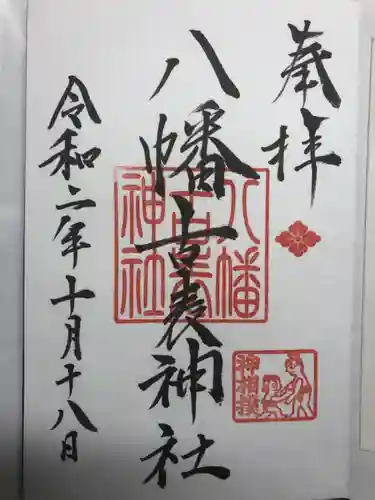 奉拝
八幡古表神社
令和二年十月十八日
八幡
古表
神社
神相撲